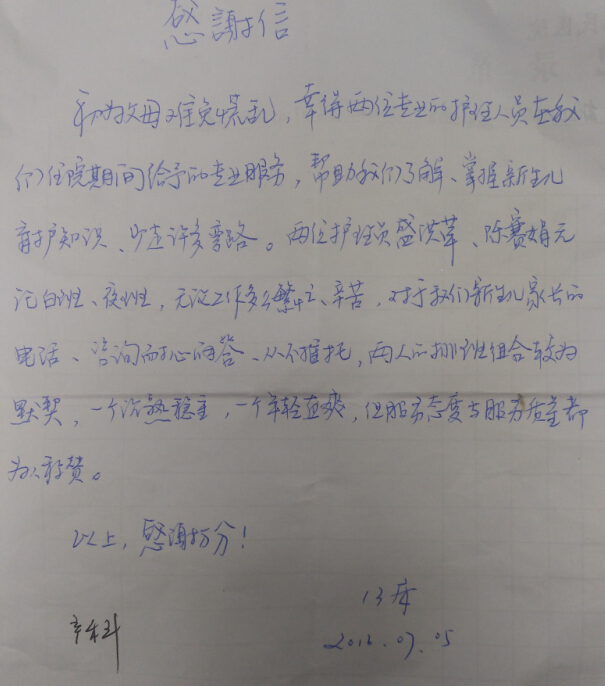 感謝信
初为父母难免慌乱，幸得两位专业的护理人员在我
们住院期间给予的专业服务，帮助我们了解、掌握新生儿
育护知识、少走许多弯路。两位护理员盛洪革、陈赛娟无
论白班、夜班，无论工作多么繁忙、辛苦，对于我们新生儿家长的
电话、咨询耐心回答、从不推托，两人的排班组合较为
默契，一个沉熟稳重，一个年轻直爽，但服务态度与服务质量都
为人称赞。
以上，感谢万分！
13床
07.05